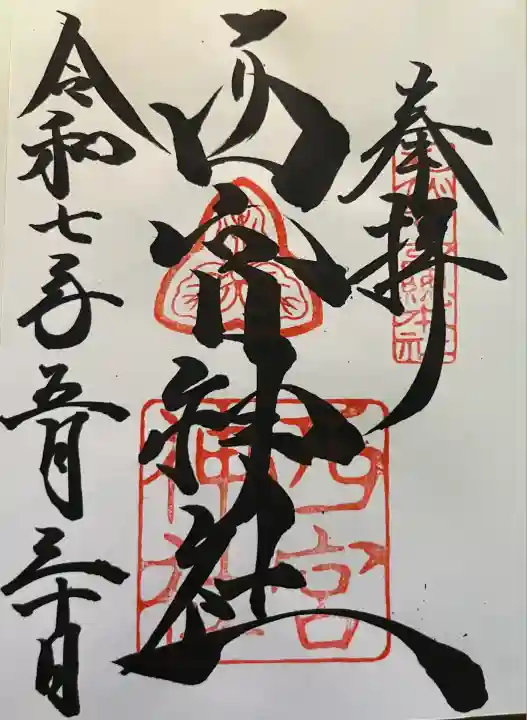 奉拝
西宮神社
西宮
神社
令和七年五月三十日